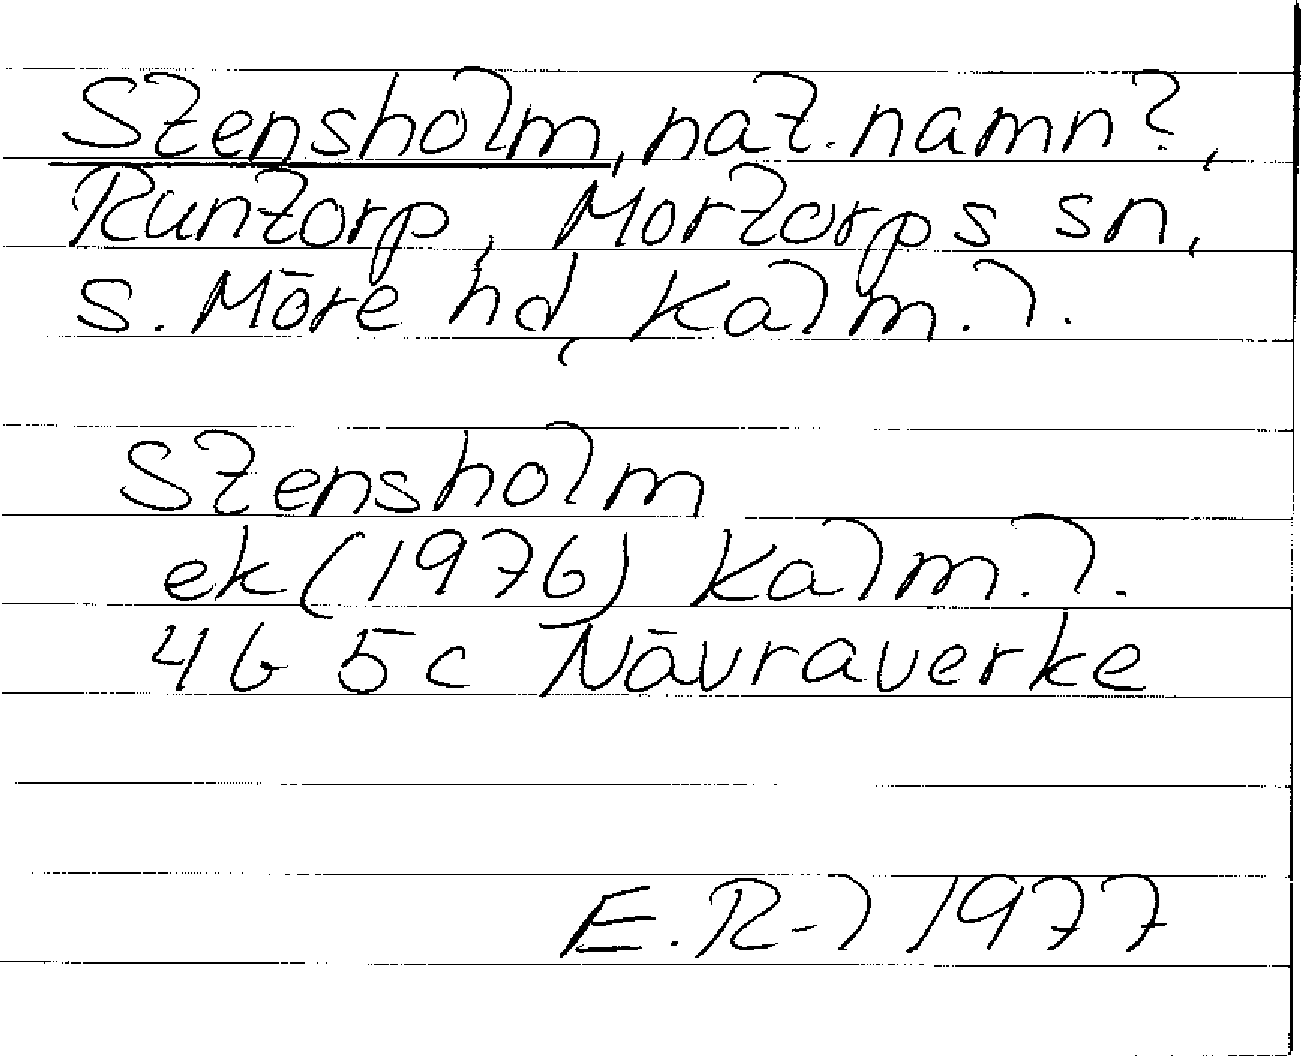 Stensholm, nat. namn?,
Runtorp, Mortorps sn,
S. Möre hd, Kalm. l.
Stensholm
ek (1976) Kalm. l.
4G 5c Nävraverke
E. R-l 1977